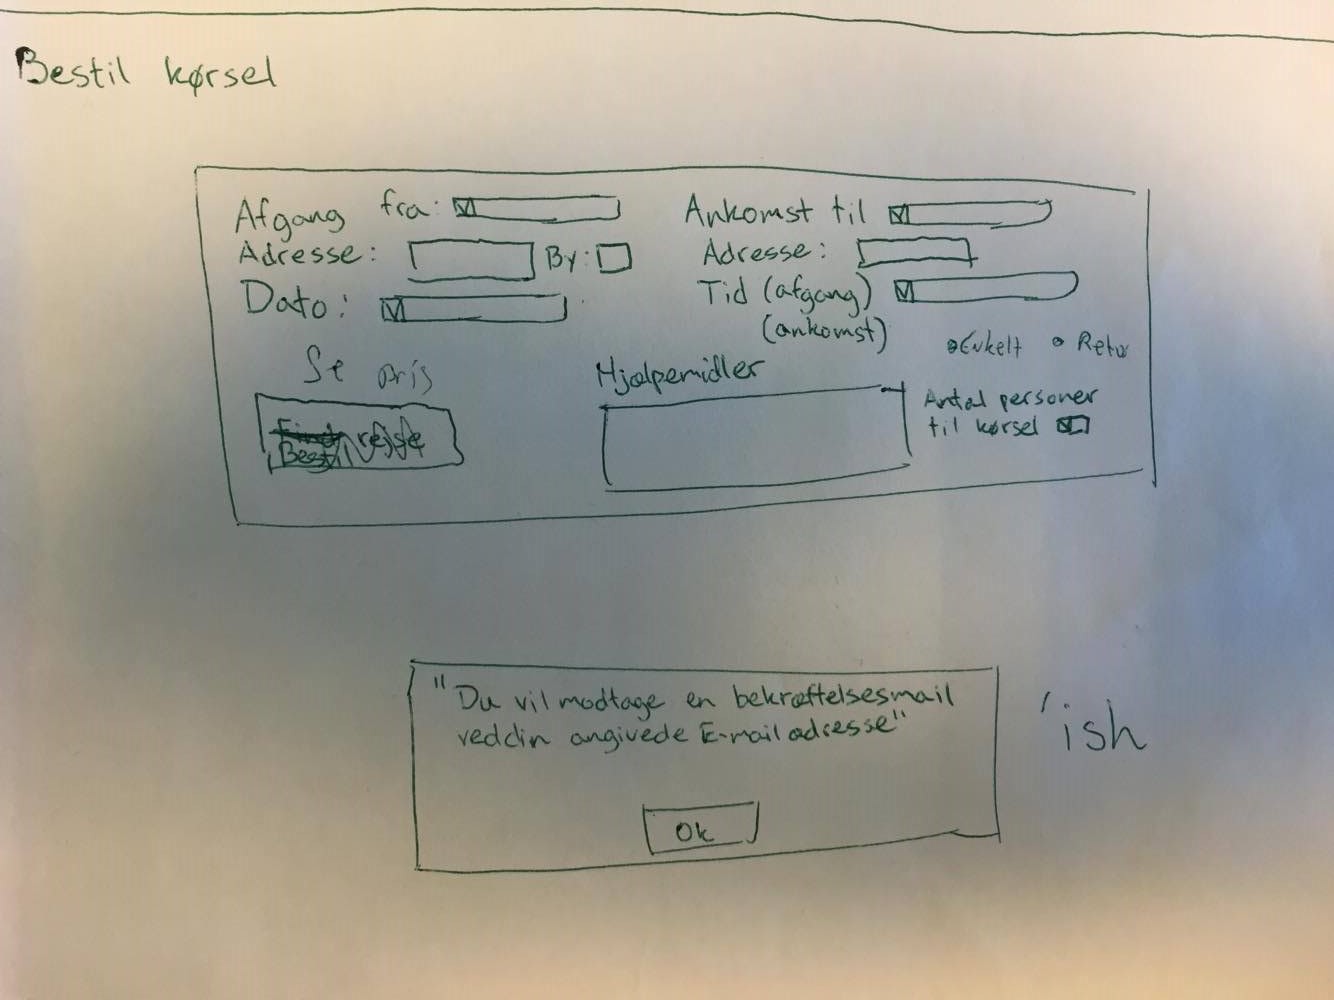 Bestil kørsel
Afgang fra:
Adresse: By:
Dato:
Ankomst til
Adresse:
Tid (afgang)
(ankomst)
Enkelt Retur
Se pris
Find
Bestil rejse
Hjælpemidler
Antal personer
til kørsel
"Du vil modtage en bekræftelsesmail
ved din angivede E-mail adresse"
Ok
'ish